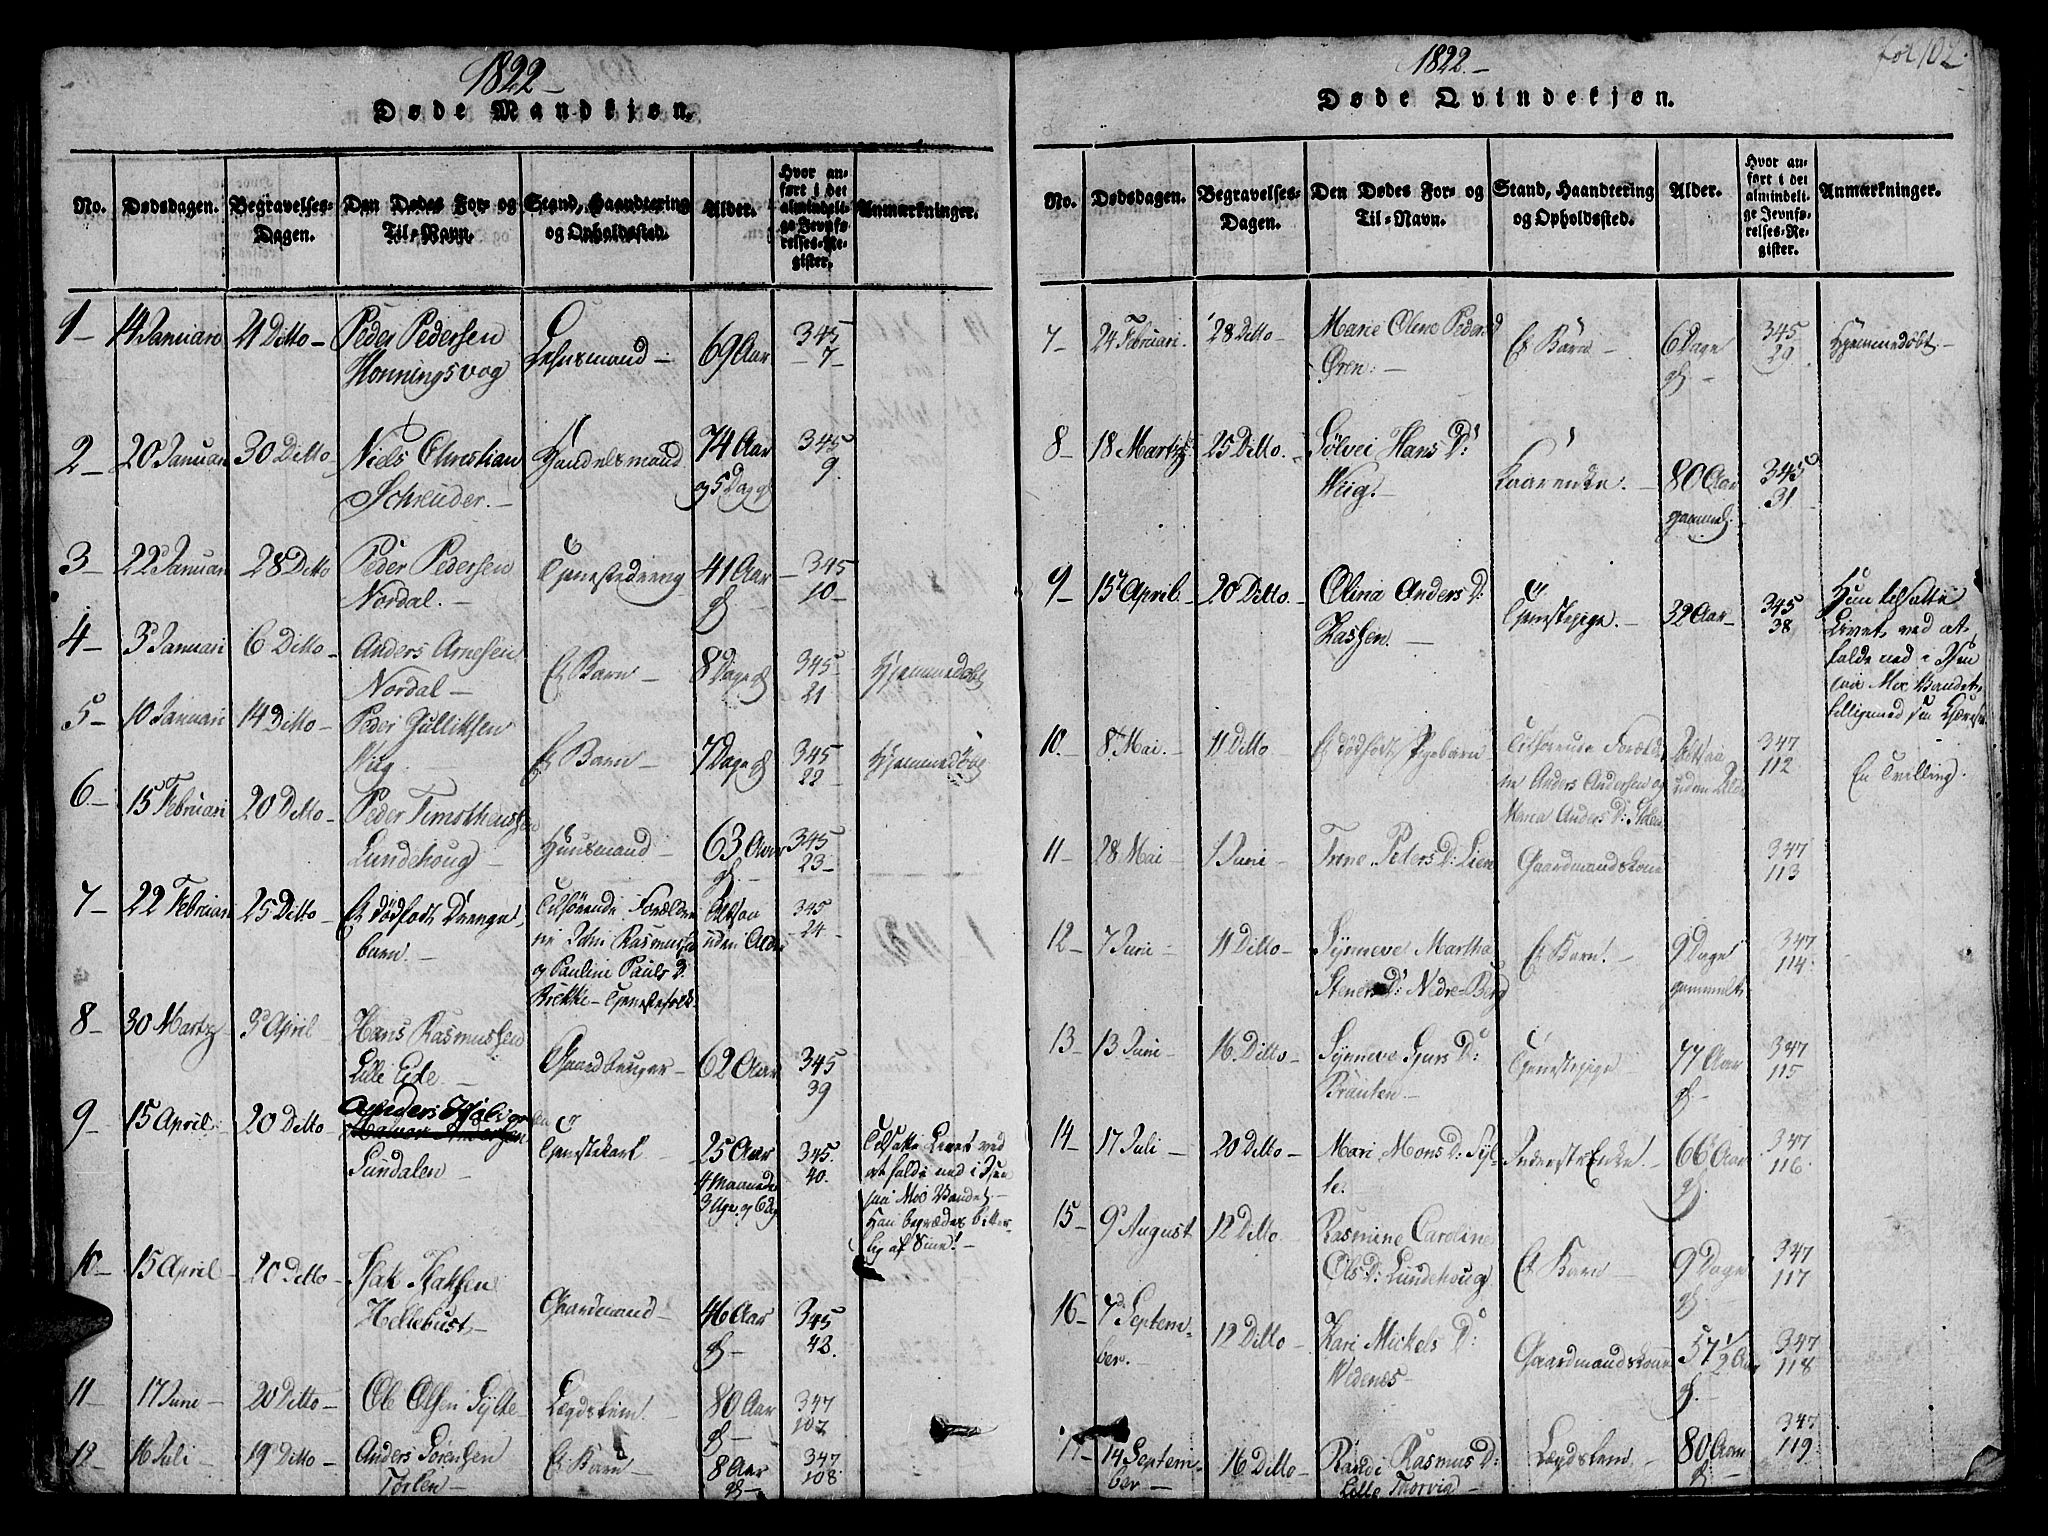 1822 –
Døde Mandkjøn.
No.
Dødsdagen.
Begravelses-
Dagen.
Den Dødes For- og
Til-Navn.
Stand, Haandtering
og Opholdssted.
Alder.
Hvor an-
ført i det
almindeli-
ge Jevnfø-
relses-Re-
gister.
Anmærkninger.
1 – 14 Januari 21 Ditto – Peder Pedersen
Honningsvog
Lehnsmand – 69 Aar 345
7 –
2 – 20 Januari 30 Ditto Niels Christian
Schreuder. –
Handelsmand 74 Aar
og 5 Dage
345
9.
3 – 22 Januari 28 Ditto Peder Pedersen
Nordal. –
Tjenestedreng 41 Aar
345
10 –
4 – 3 Januari 6 Ditto – Anders Arnesen
Nordal –
Et Barn – 8 Dage
345
21
Hjemmedøbt
5 – 10 Januari 14 Ditto – Peder Gullikssen
Wiig
Et Barn – 7 Dage
345
22
Hjemmedøbt
6 – 15 Februari 20 Ditto – Peder Timotheussen
Lundehoug –
Huusmand – 63 Aar
345
23 –
7 – 22 Februari 25 Ditto – Et dødfødt Drenge
barn. –
Tilhørende Forældre
ne John Rasmussen
og Pauline Pauls D:
Brekke – Tjenestefolk
Altsaa
uden Alder
345
24 –
8 – 30 Martz – 3 April – Hans Rasmussen
Lille Eide –
Gaardbruger – 62 Aar 345
39
9 – 15 April 20 Ditto –
Sundalen
Tjenestekarl 25 Aar
4 Maaneder
3 Uger og 6 Dg
345.
40.
Tilsatte Livet ved
at falde ned i Isen
paa Moe Vandet. –
Han begrædes bitter-
lig af Sine! –
10 – 15 April – 20 Ditto – Isak Isaksen
Hellebust –
Gaardmand – 46 Aar
345
42.
11 – 17 Juni – 20 Ditto – Ole Olsen Sylte – Lægdslem. – 80 Aar
347
107
12 – 16 Juli – 19 Ditto – Anders Sørensen
Torlen –
Et Barn – 8 Aar
347
108.
fol 102.
1822. –
Døde Qvindekjøn.
No.
Dødsdagen.
Begravelses-
Dagen.
Den Dødes For- og
Til-Navn.
Stand, Haandtering
og Opholdssted.
Alder.
Hvor an-
ført i det
almindeli-
ge Jevnfø-
relses-Re-
gister.
Anmærkninger.
7 – 24 Februari. 28 Ditto – Marie Oline Peders D
Øren. –
Et Barn – 6 Dage
345
29
Hjemmedøbt. –
8 – 18 Martz 25 Ditto. – Sølvei Hans D:
Wiig. –
Kaarenke. – 80 Aar
gammel.
345
31
9 – 15 April – 20 Ditto – Olina Anders D:
Tjenestepige. – 32 Aar – 345
38
Hun tilsatte
Livet ved at
falde ned i Isen
paa Moe Vandet
tilligemed sin Kjæreste
10. – 8 Mai. – 11 Ditto – Et dødfødt Pigebarn Tilhørende Forældre
ne Anders Andersen og
Maria Anders D:
Altsaa
uden Alder
347
112
En Tvilling.
11 – 28 Mai – 1 Juni – Trone Peders D: Lien Gaardmandskone 347
113
12 – 7 Juni – 11 Ditto – Synneve Martha
Steners D: Nedre Berg
Et Barn! – 9 Dage
gammelt
347
114
13 – 13 Juni – 16 Ditto – Synneve Sjurs D:
Bräuten –
Tjenestepige – 77 Aar
347
115
14 – 17 Juli – 20 Ditto – Mari Mons D: Syl-
te.
66 Aar
347
116
15 – 9 August 12 Ditto Rasmine Caroline
Ols D: Lundehoug
Et Barn – 9 Dage
347
117
16 – 7 Septem-
ber. –
12 Ditto Kari Mickels D:
Wedenes –
Gaardmandskone 57 1/2 Aar
347
118
17 – 14 Septem-
ber –
16 Ditto – Randi Rasmus D:
Lille Morvig –
Lægdslem 80 Aar
347
119